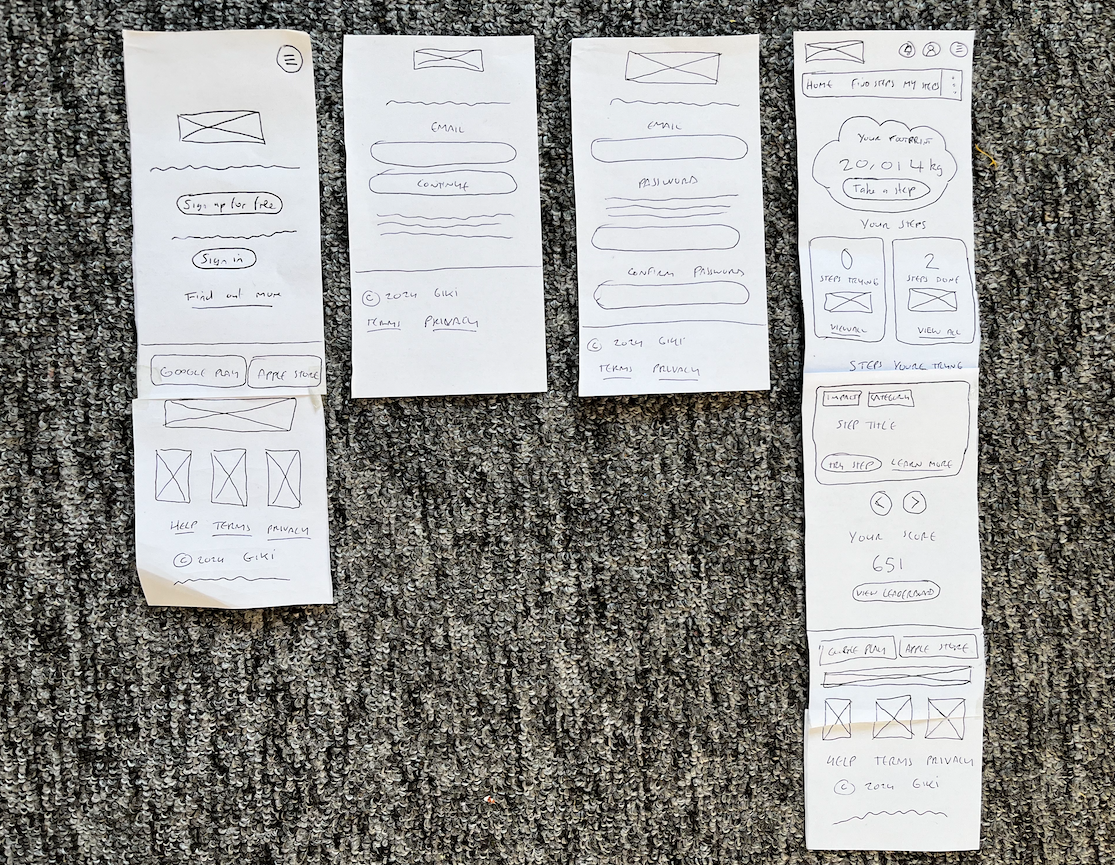 Sign up for free
Sign in
Find out more
GOOGLE PLAY APPLE STORE
HELP TERMS PRIVACY
© 2024 GIKI
EMAIL
CONTINUE
© 2024 GIKI
TERMS PRIVACY
EMAIL
PASSWORD
CONFIRM PASSWORD
© 2024 GIKI
TERMS PRIVACY
HOME FIND STEPS MY STEPS
YOUR FOOTPRINT
20,014 kg
Take a step
YOUR STEPS
0 2
STEPS TRYING STEPS DONE
VIEW ALL VIEW ALL
STEPS YOU'RE TRYING
IMPACT CATEGORY
STEP TITLE
TRY STEP LEARN MORE
< >
YOUR SCORE
651
VIEW LEADERBOARD
GOOGLE PLAY APPLE STORE
HELP TERMS PRIVACY
© 2024 GIKI